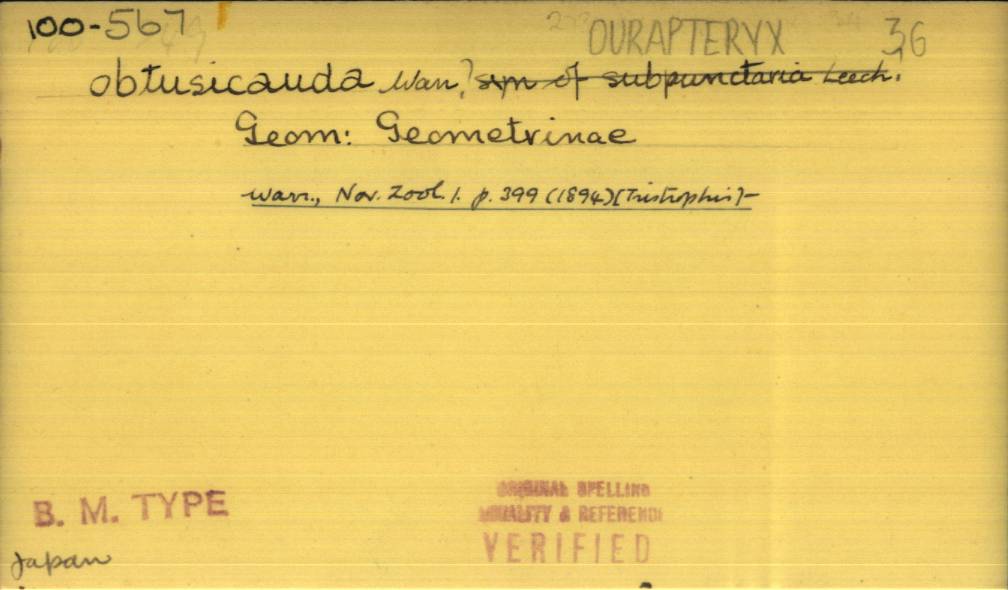 100-567 OURAPTERYX 36
obtusicauda Warr. ? syn of subpunctaria Leech.
Geom: Geometrinae
Warr., Nov. Zool. 1. p. 399 (1894) [Tristrophis]-
B. M. TYPE
Japan
ORIGINAL SPELLING
LOCALITY & REFERENCE
VERIFIED